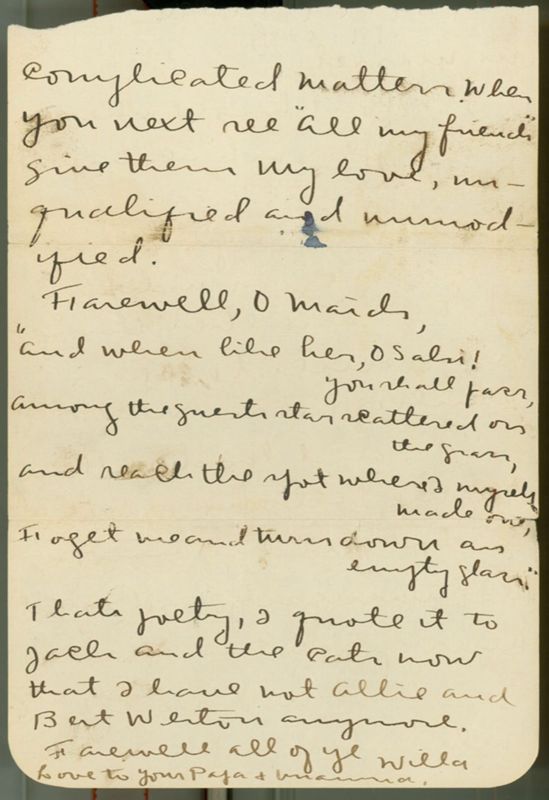 complicated matter. When
you next see "all my friends"
give them my love, un-
qualified and unmod-
ified.
Farewell, O Maids,
"and when like her, O Saki!
you shall pass,
among the guests star scattered on
the grass,
and reach the spot where I myself
made one,
Foget me and turn down an
empty glass."
Thats poetry, I quote it to
Jack and the cats now
that I have not Allie and
Bert Weston anymore.
Farewell all of ye Willa
Love to your Papa + mamma.